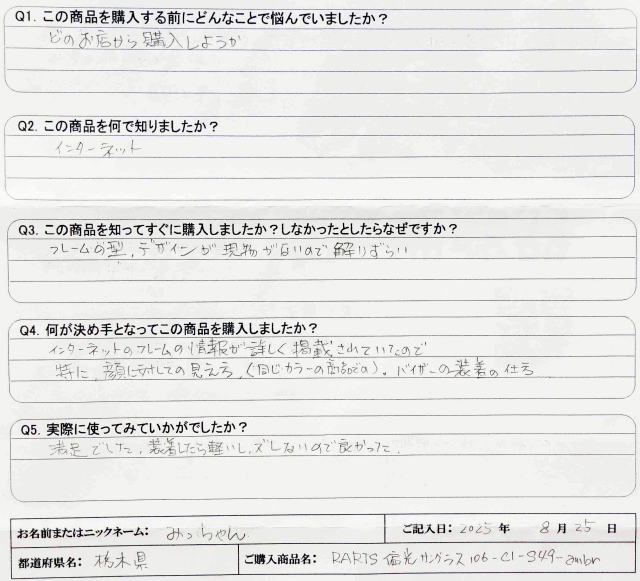 Q1. この商品を購入する前にどんなことで悩んでいましたか？
どのお店から購入しようか
Q2. この商品を何で知りましたか？
インターネット
Q3. この商品を知ってすぐに購入しましたか？しなかったとしたらなぜですか？
フレームの型、デザインが現物がないので解りずらい
Q4. 何が決め手となってこの商品を購入しましたか？
インターネットのフレームの情報が詳しく掲載されていたので
特に、顔に対しての見え方、(同じカラーの商品での)。バイザーの装着の仕方
Q5. 実際に使ってみていかがでしたか？
満足でした。装着したら軽いし、ズレないので良かった。
お名前またはニックネーム： みっちゃん ご記入日： 2025 年 8 月 25 日
都道府県名： 栃木県 ご購入商品名： RARTS 偏光サングラス 106-C1-S49-ambr